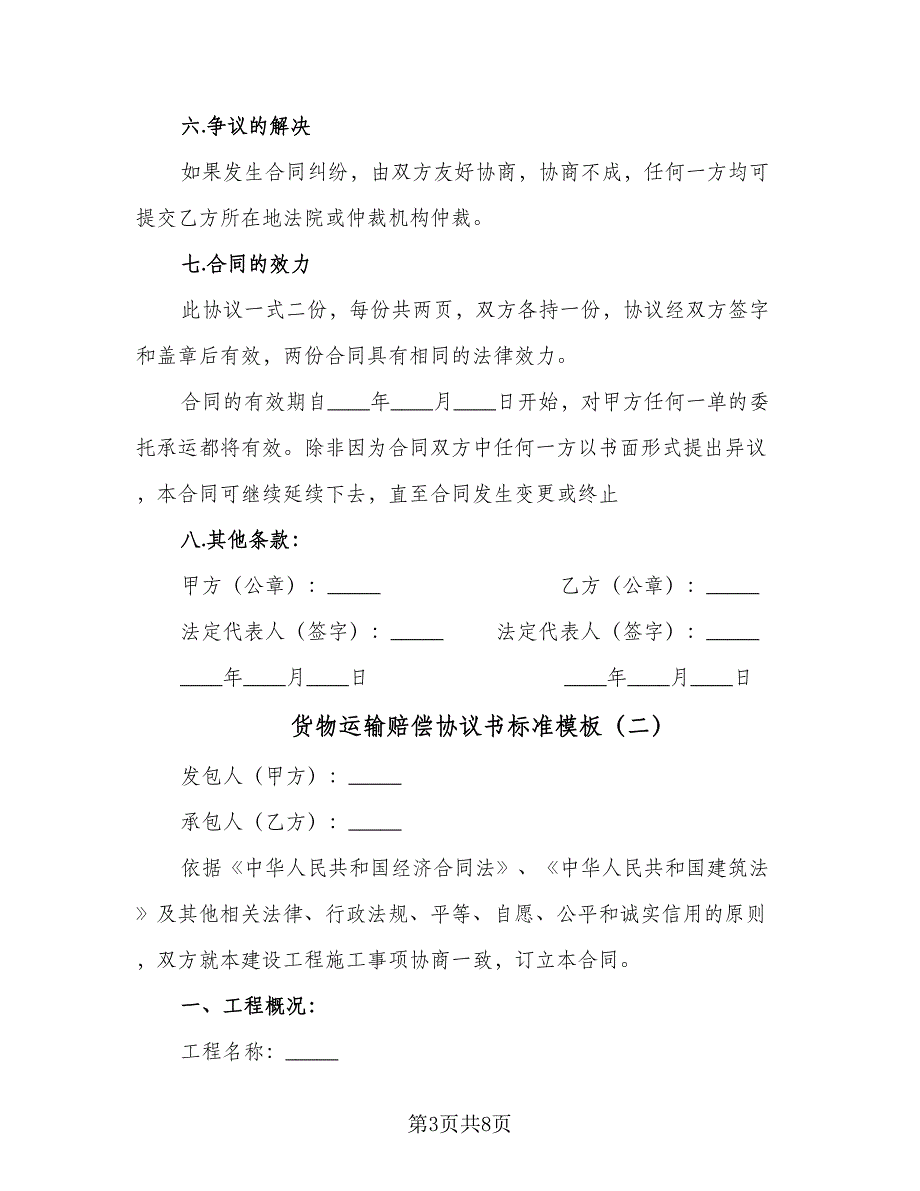 六.争议的解决
如果发生合同纠纷，由双方友好协商，协商不成，任何一方均可
提交乙方所在地法院或仲裁机构仲裁。
七.合同的效力
此协议一式二份，每份共两页，双方各持一份，协议经双方签字
和盖章后有效，两份合同具有相同的法律效力。
合同的有效期自____年____月____日开始，对甲方任何一单的委
托承运都将有效。除非因为合同双方中任何一方以书面形式提出异议
，本合同可继续延续下去，直至合同发生变更或终止
八.其他条款：
甲方（公章）：_____ 乙方（公章）：_____
法定代表人（签字）：_____ 法定代表人（签字）：_____
____年____月____日 ____年____月____日
货物运输赔偿协议书标准模板（二）
发包人（甲方）：_____
承包人（乙方）：_____
依据《中华人民共和国经济合同法》、《中华人民共和国建筑法
》及其他相关法律、行政法规、平等、自愿、公平和诚实信用的原则
，双方就本建设工程施工事项协商一致，订立本合同。
一、工程概况：
工程名称：_____
第3页共8页